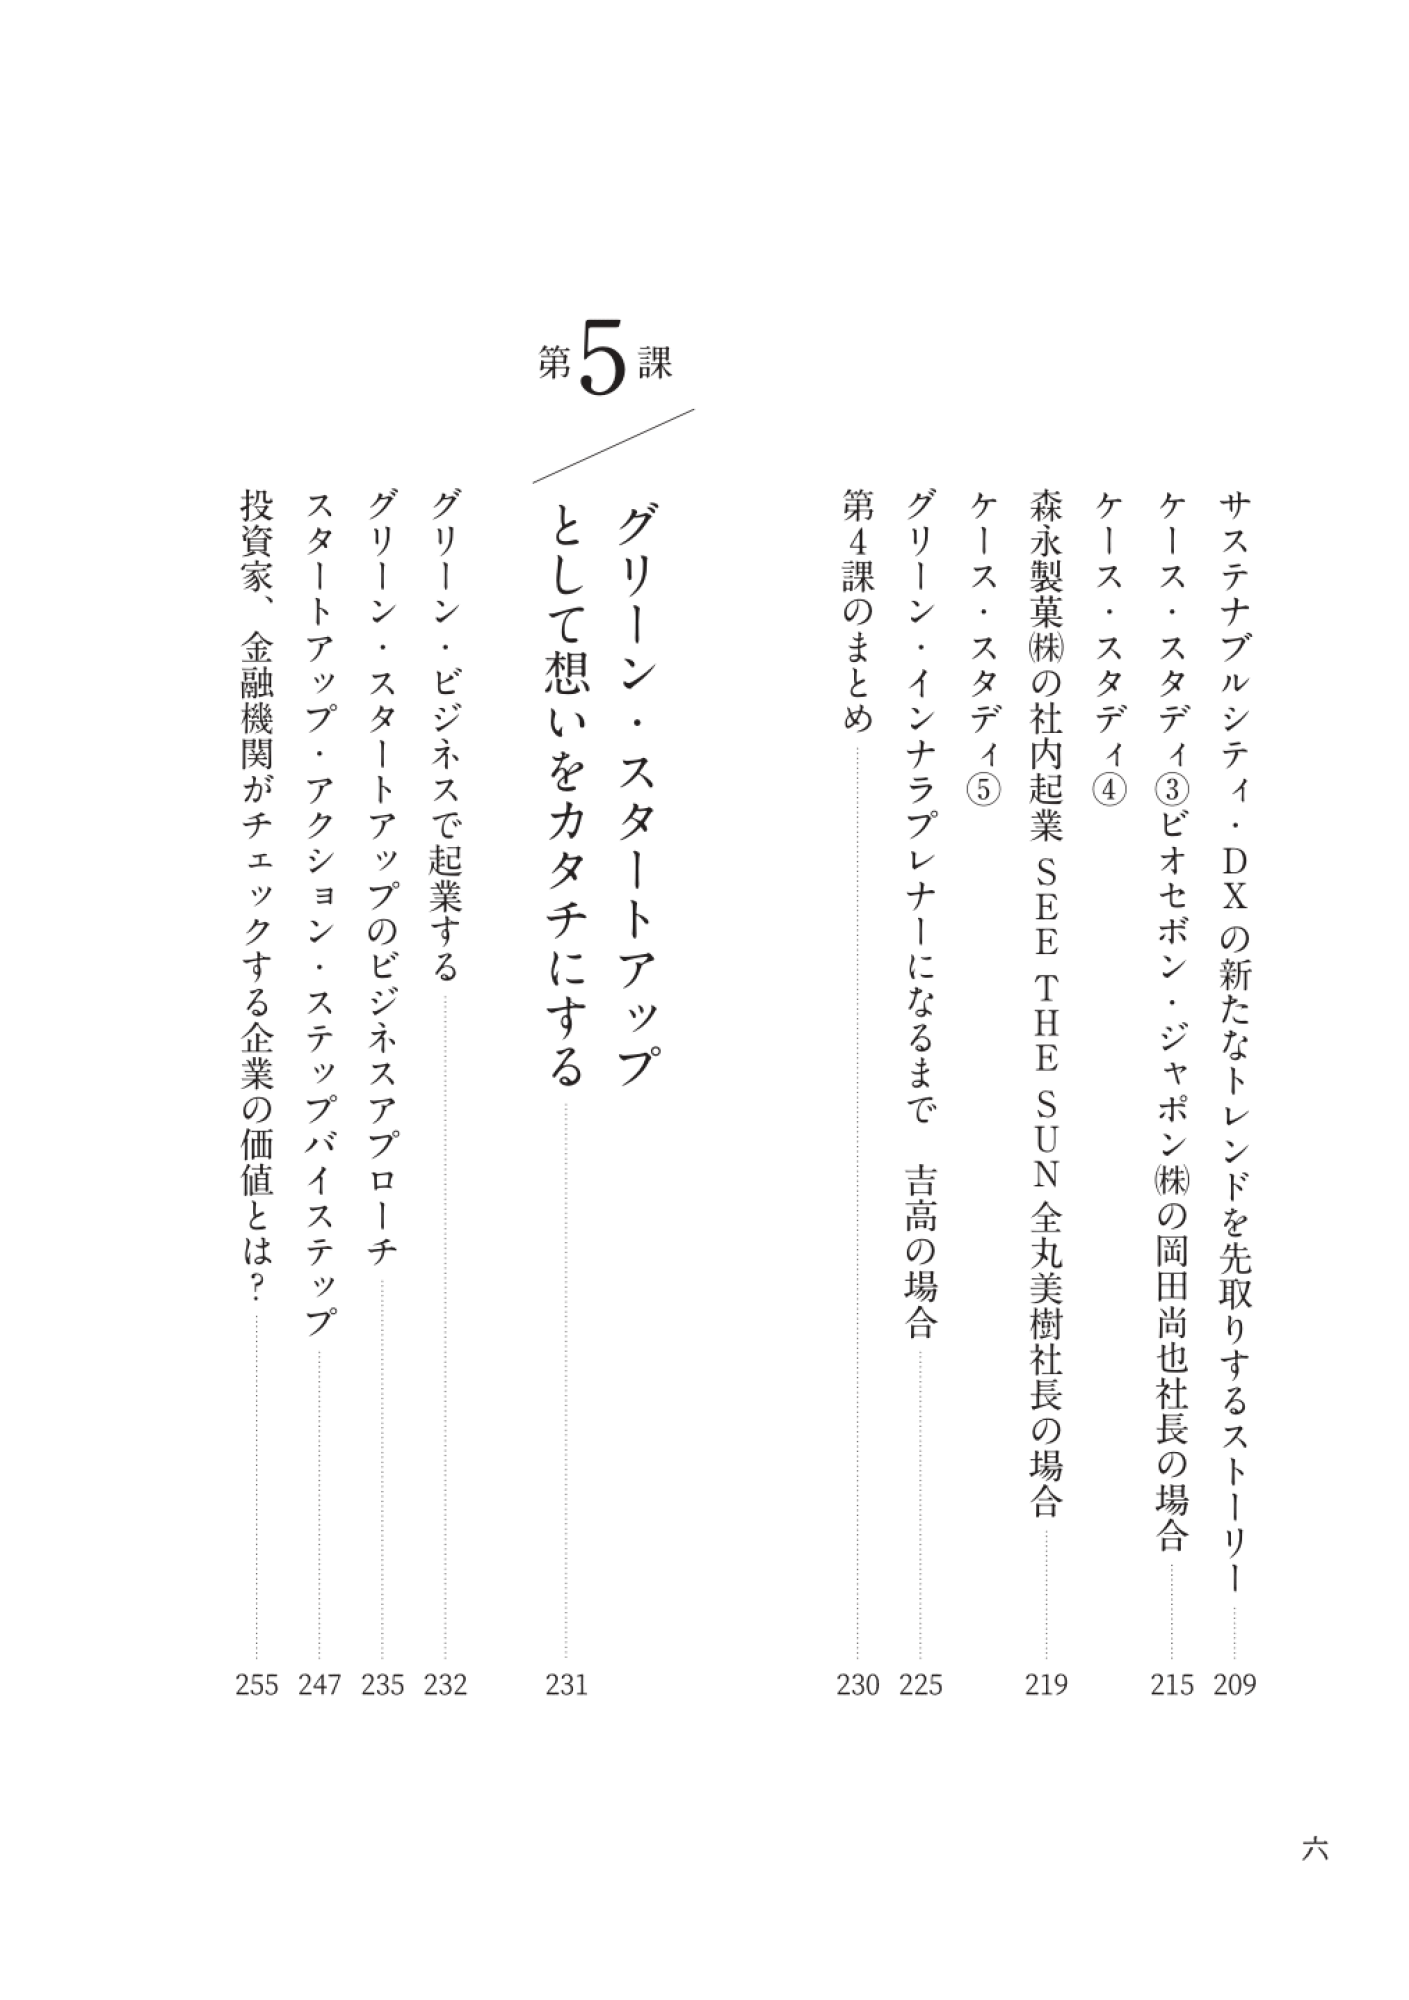 サステナブルシティ・DXの新たなトレンドを先取りするストーリー 209
ケース・スタディ③ビオセボン・ジャポン㈱の岡田尚也社長の場合 215
ケース・スタディ④
森永製菓㈱の社内起業 SEE THE SUN 全丸美樹社長の場合 219
ケース・スタディ⑤
グリーン・インナラプレナーになるまで　吉高の場合 225
第4課のまとめ 230
第5課
グリーン・スタートアップ
として想いをカタチにする 231
グリーン・ビジネスで起業する 232
グリーン・スタートアップのビジネスアプローチ 235
スタートアップ・アクション・ステップバイステップ 247
投資家、金融機関がチェックする企業の価値とは? 255
六